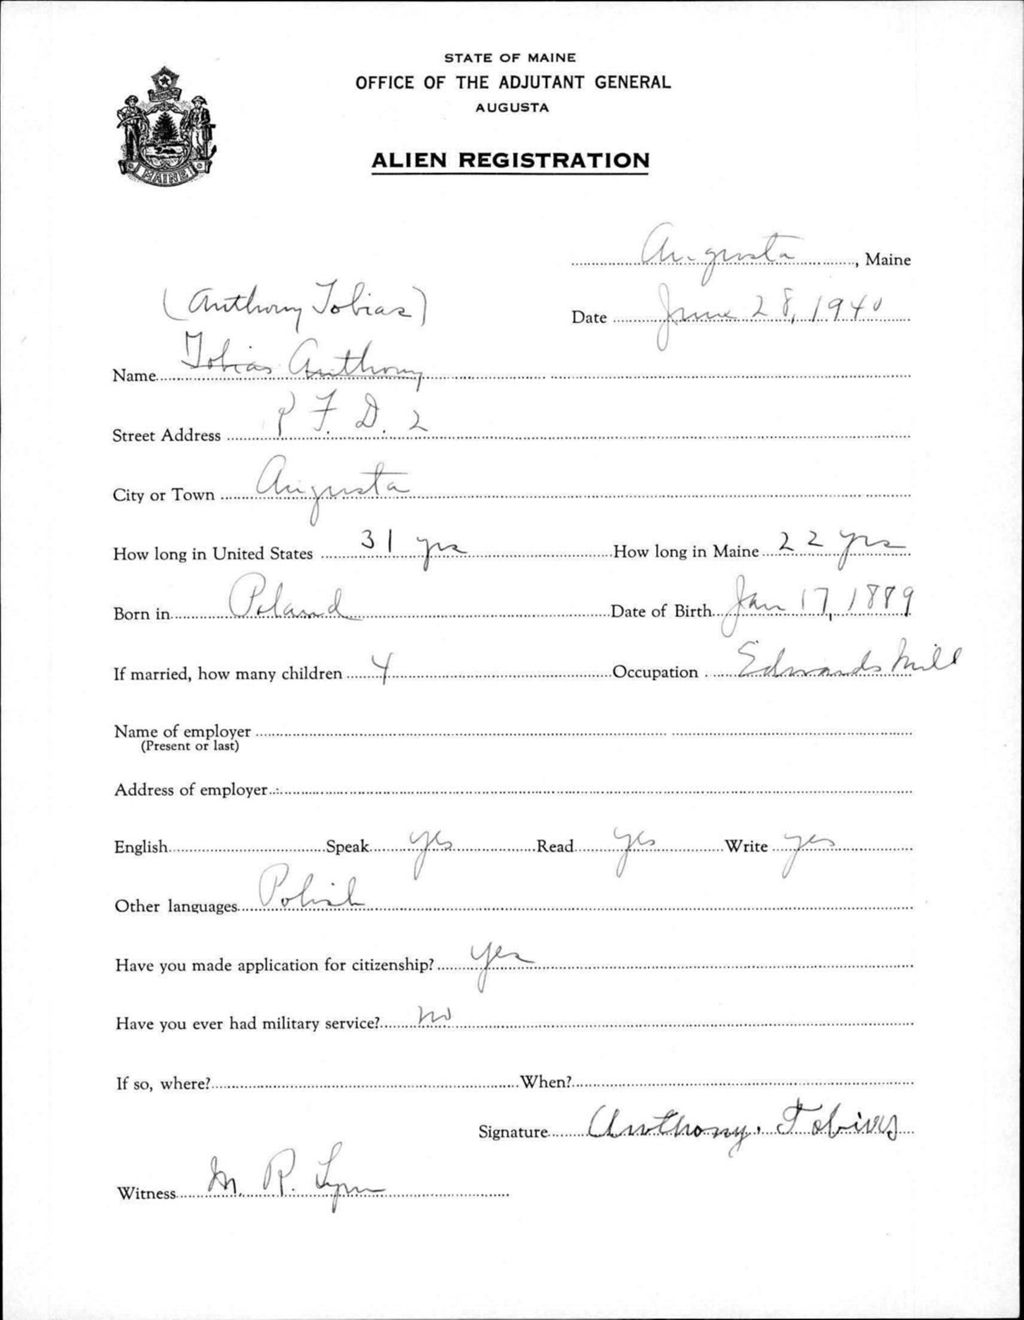 STATE OF MAINE
OFFICE OF THE ADJUTANT GENERAL
AUGUSTA
ALIEN REGISTRATION
MAINE
Augusta, Maine
(Anthony Tobias)
Date June 28, 1940
Name Tobias Anthony
Street Address R F. D. 2
City or Town Augusta
How long in United States 31 yrs How long in Maine 22 yrs
Born in Poland Date of Birth Jan 17, 1889
If married, how many children 4 Occupation Edwards Mill
Name of employer
(Present or last)
Address of employer
English Speak yes Read yes Write yes
Other languages Polish
Have you made application for citizenship? yes
Have you ever had military service? no
If so, where? When?
Signature Anthony. Tobias
Witness M. R. Lynn